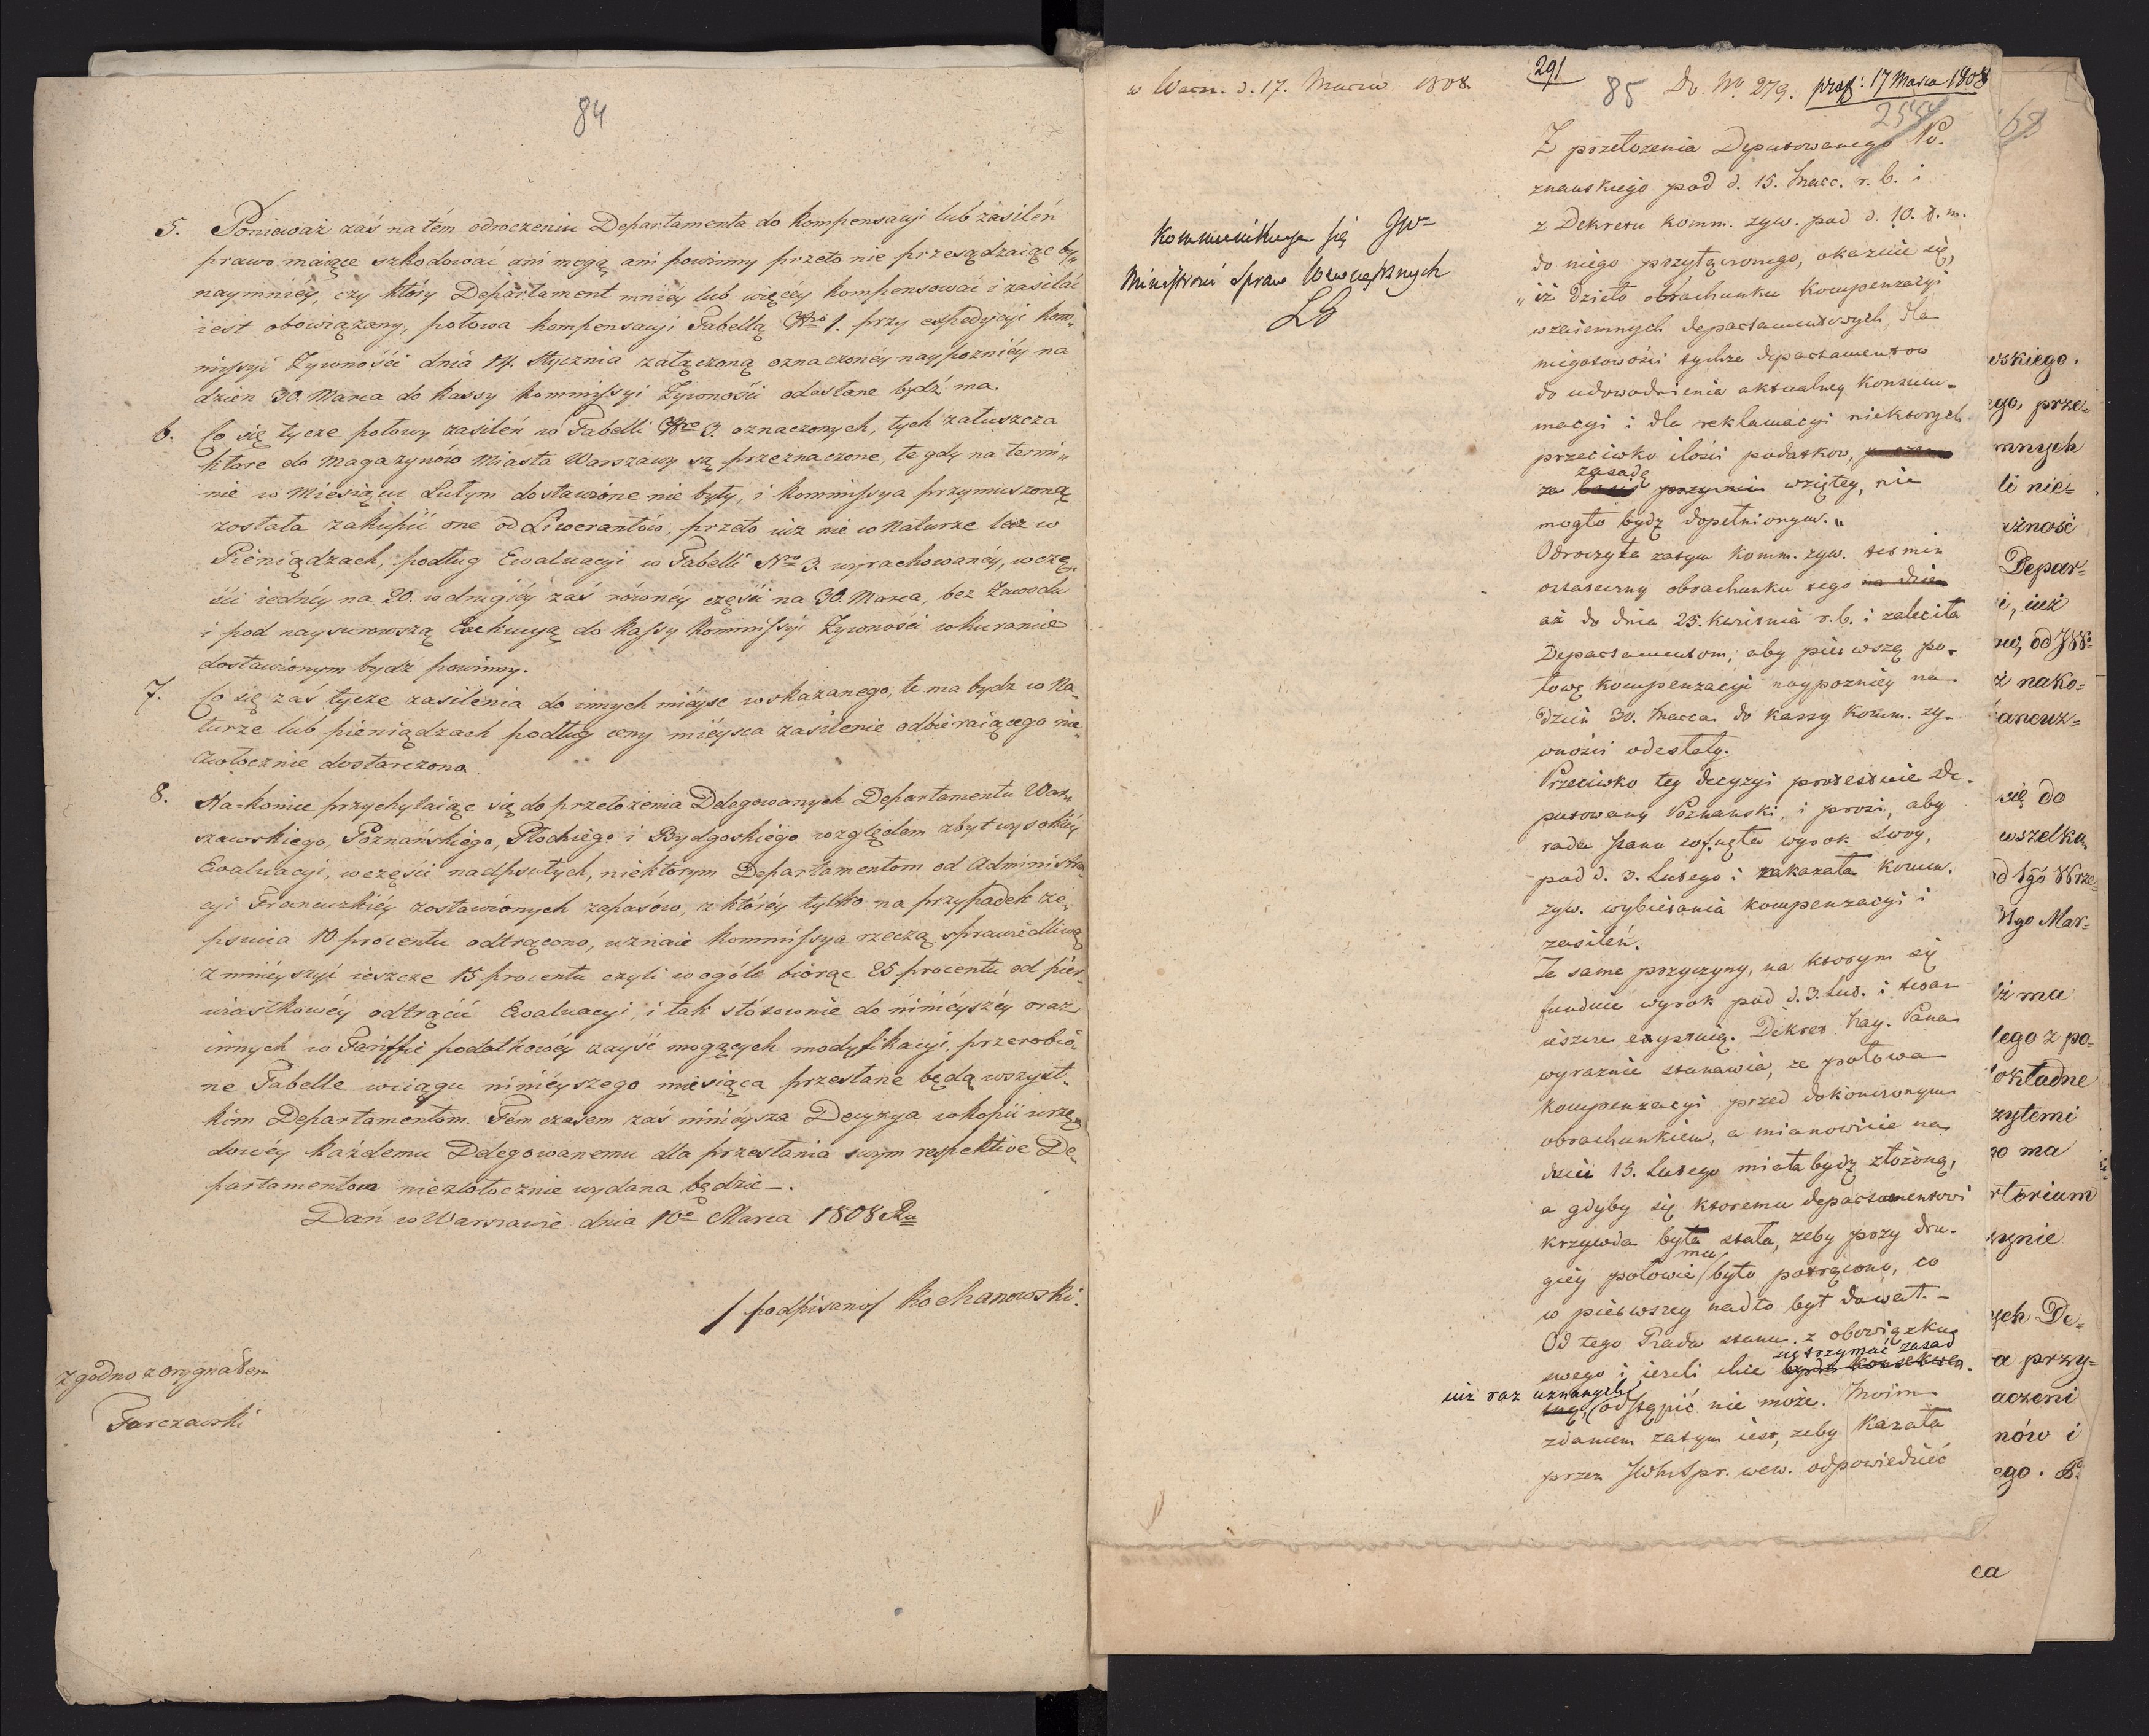 84
5. Ponieważ zaś na tém odroczeniu Departamenta do kompensacyi lub zasileń
prawo maiące szkodować ani mogą ani powinny przeto nie przesądzaiąc by„
naymniéy, czy który Departament mniéy lub więcéy kompensować i zasilać
iest obowiązany, połowa kompensacyi Tabellą Nro 1. przy expedycyi Kom„
missyi Żywnośći dnia 14. Stycznia załączoną oznaczonéy naypoźniéy na
dzien 30. Marca do kassy Kommissyi Żywnośći odesłane bydź ma.
6. Co się tycze połowy zasileń w Tabelli Nro 3. oznaczonych, tych zatuszcza
ktore do Magazynów Miasta Warszawy są przeznaczone, te gdy na termi„
nie w Miesiącu Lutym dostawione nie były, i Kommissya przymuszoną
została zakupić one od Liwerantów, przeto iuż nie w Naturze lecz w
Pieniądzach, podług Ewaluacyi w Tabelli Nro 3. wyrachowanéy, w czę„
śći iednéy na 20. w drugiéy zaś równéy częśći na 30. Marca, bez Zawodu
i pod naysurowszą Exekucyą do Kassy Kommissyi Żywnośći w kurancie
dostawionym bydz powinny.
7. Co się zaś tycze zasilenia do innych mieysc wskazanego, te ma bydz w Na„
turze lub pieniądzach podług ceny miéysca zasilenie odbieraiącego nie„
zwłocznie dostarczono.
8. Na-koniec przychylaiąc się do przełożenia Delegowanych Departamentu War„
szawskiego, Poznańskiego, Płockiego i Bydgoskiego względem zbyt wysokiéy
Ewaluacyi, w częśći nadpsutych, niektórym Departamentom od Administra„
cyi Francuzkiéy zostawionych zapasów, z któréy tylko na przypadek ze„
psucia 10 procentu odtrącono, uznaie Kommissya rzeczą sprawiedliwą
zmniéyszyć ieszcze 15 procentu czyli w ogóle biorąc 25 procentu od pier„
wiastkowéy odtrącić Ewaluacyi, i tak stósownie do ninieyszéy oraz
innych w Tariffie podatkowéy zayść mogących modyfikacyi, przerobio„
ne Tabelle wciągu ninieyszego miesiąca przesłane będą wszyst„
kim Departamentom. Tém czasem zaś ninieysza Decyzya w kopii urzę„
dowéy każdemu Delegowanemu dla przesłania swym respektive De„
partamentom niezwłocznie wydana będzie—.
Dań w Warszawie dnia 10o Marca 1808 Ru
/podpisano/ Kochanowski.
zgodno z orygnałem
Tarczewski
w Warsz. d. 17. Marca 1808
291
85 Dv. No 279. praes: 17 Marca 1808
Kommunikuje się JW
Ministrowi Spraw Wewnętrznych
Z przełożenia Deputowanego Po-
znanskiego pod d. 15. Marc. r. b. i
z Dekretu komm. zyw. pod d. 10. t. m.
do niego przyłączonego, okazuie się,
„iż dzieło obrachunku kompenzacyi
wzaiemnych departamentowych, dla
niegotowości tychże departamentow
do udowodnienia aktualney konsum-
macyi i dla reklamacyi niektorych
przeciwko ilości podatkow,
zasadę
za wziętey, nie
mogło bydź dopełnionym.„
Odroczyła zatym komm. zyw. termin
ostateczny obrachunku tego na dzien
aż do dnia 25. kwietnia r. b. i zaleciła
Departamentom, aby pierwszą po-
łowę kompenzacyi naypozniey na
dzień 30. Marca do kassy komm. zy-
wności odesłały.
Przeciwko tey decyzyi protestuie De-
putowany Poznanski, i prosi, aby
rada stanu cofnęła wyrok swoy,
pod d. 3. Lutego i zakazała komm.
zyw. wybierania kompenzacyi i
zasileń.
Te same przyczyny, na ktorym się
funduie wyrok pod d. 3. Lut. i teraz
ieszcze exystuią. Dekret Nay. Pana
wyraznie stanawia, ze połowa
kompenzacyi przed dokonczonym
obrachunkiem, a mianowicie na
dzień 15. Lutego miała bydź złożoną,
a gdyby się ktoremu departamentowi
krzywda była stała, zeby przy dru-
giéy połowie mu było potrącono, co
w pierwszey nadto był dawał.—
Od tego Rada stanu z obowiązku
swego i iezeli chce utrzymać zasad
iuz raz uznanych, odstąpić nie może. Moim
zdaniem zatym iest, zeby kazała
przez JWMSpr. wew. odpowiedzieć
wskiego.
ego, prze-
mnych
li nie-
Depar-
i, iuż
ż nako-
ancuz-
się do
wszelk
31go Mar-
ma
ego z po-
okładne
zytemi
go ma
rtorium
ych De-
a przy-
aczeni
nów i
ego.
ca